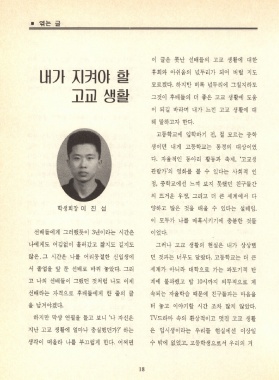 ■ 여는 글
내가 지켜야 할
고교 생활
학생회장 이 진 섭
선배들에게 그러했듯이 3년이라는 시간은
나에게도 어김없이 흘러갔고 짧지도 길지도
않은, 그 시간을 나를 어리둥절한 신입생에
서 졸업을 앞 둔 선배로 바꿔 놓았다. 그리
고 나의 선배들이 그랬던 것처럼 나도 이제
선배라는 자격으로 후배들에게 한 줄의 글
을 남겨야겠다.
하지만 막상 연필을 들고 보니 '나 자신은
지난 고교 생활에 얼마나 충실했던가?' 하는
생각이 애틋하 나를 부끄럽게 한다. 어쩌면
이 글은 못난 선배들의 고교 생활에 대한
후회와 아쉬움의 넋두리가 되어 버릴 지도
모르겠다. 하지만 비록 넋두리에 그칠지라도
그것이 후배들의 더 좋은 고교 생활에 도움
이 되길 바라며 내가 느낀 고교 생활에 대
해 말하고자 한다.
고등학교에 입학하기 전, 철 모르는 중학
생이던 내게 고등학교는 동경의 대상이었
다. 자율적인 동아리 활동과 축제, '고교생
관람가'의 영화를 볼 수 있다는 사회적 인
정, 중학교에선 느껴 보지 못했던 친구들간
의 뜨거운 우정, 그리고 더 큰 세계에서 다
양하고 많은 것을 배울 수 있다는 설레임,
이 모두가 나를 매혹시키기에 충분한 것들
이었다.
그러나 고교 생활의 현실은 내가 상상했
던 것과는 너무도 달랐다. 고등학교는 더 큰
세계가 아니라 대학으로 가는 과도기적 한
계에 불과했고 밤 10시까지 의무적으로 계
속되는 자율학습 때문에 친구들과는 마음을
터 놓고 이야기할 시간 조차 많지 않았다.
TV드라마 속의 환상적이고 멋진 고교 생활
은 입시생이라는 우리들 현실에선 이상일
수 밖에 없었고, 고등학생으로서 우리의 거
18